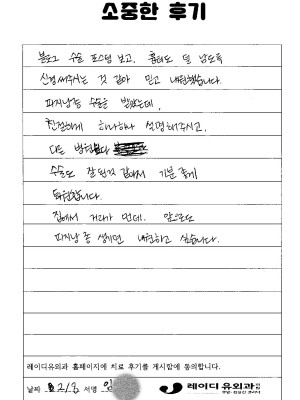 소중한 후기
블로그 수술 포스팅 보고, 흉터도 덜 남도록
신경써주시는 것 같아 믿고 내원했습니다.
피지낭종 수술을 받았는데,
친절하게 하나하나 설명해주시고,
다른 병원보다
수술도 잘 된것 같아서 기분 좋게
퇴원합니다.
집에서 거리가 먼데. 앞으로도
피지낭종 생기면 내원하고 싶습니다.
레이디유외과 홈페이지에 치료 후기를 게시함에 동의합니다.
날짜 서명 임 레이디유외과